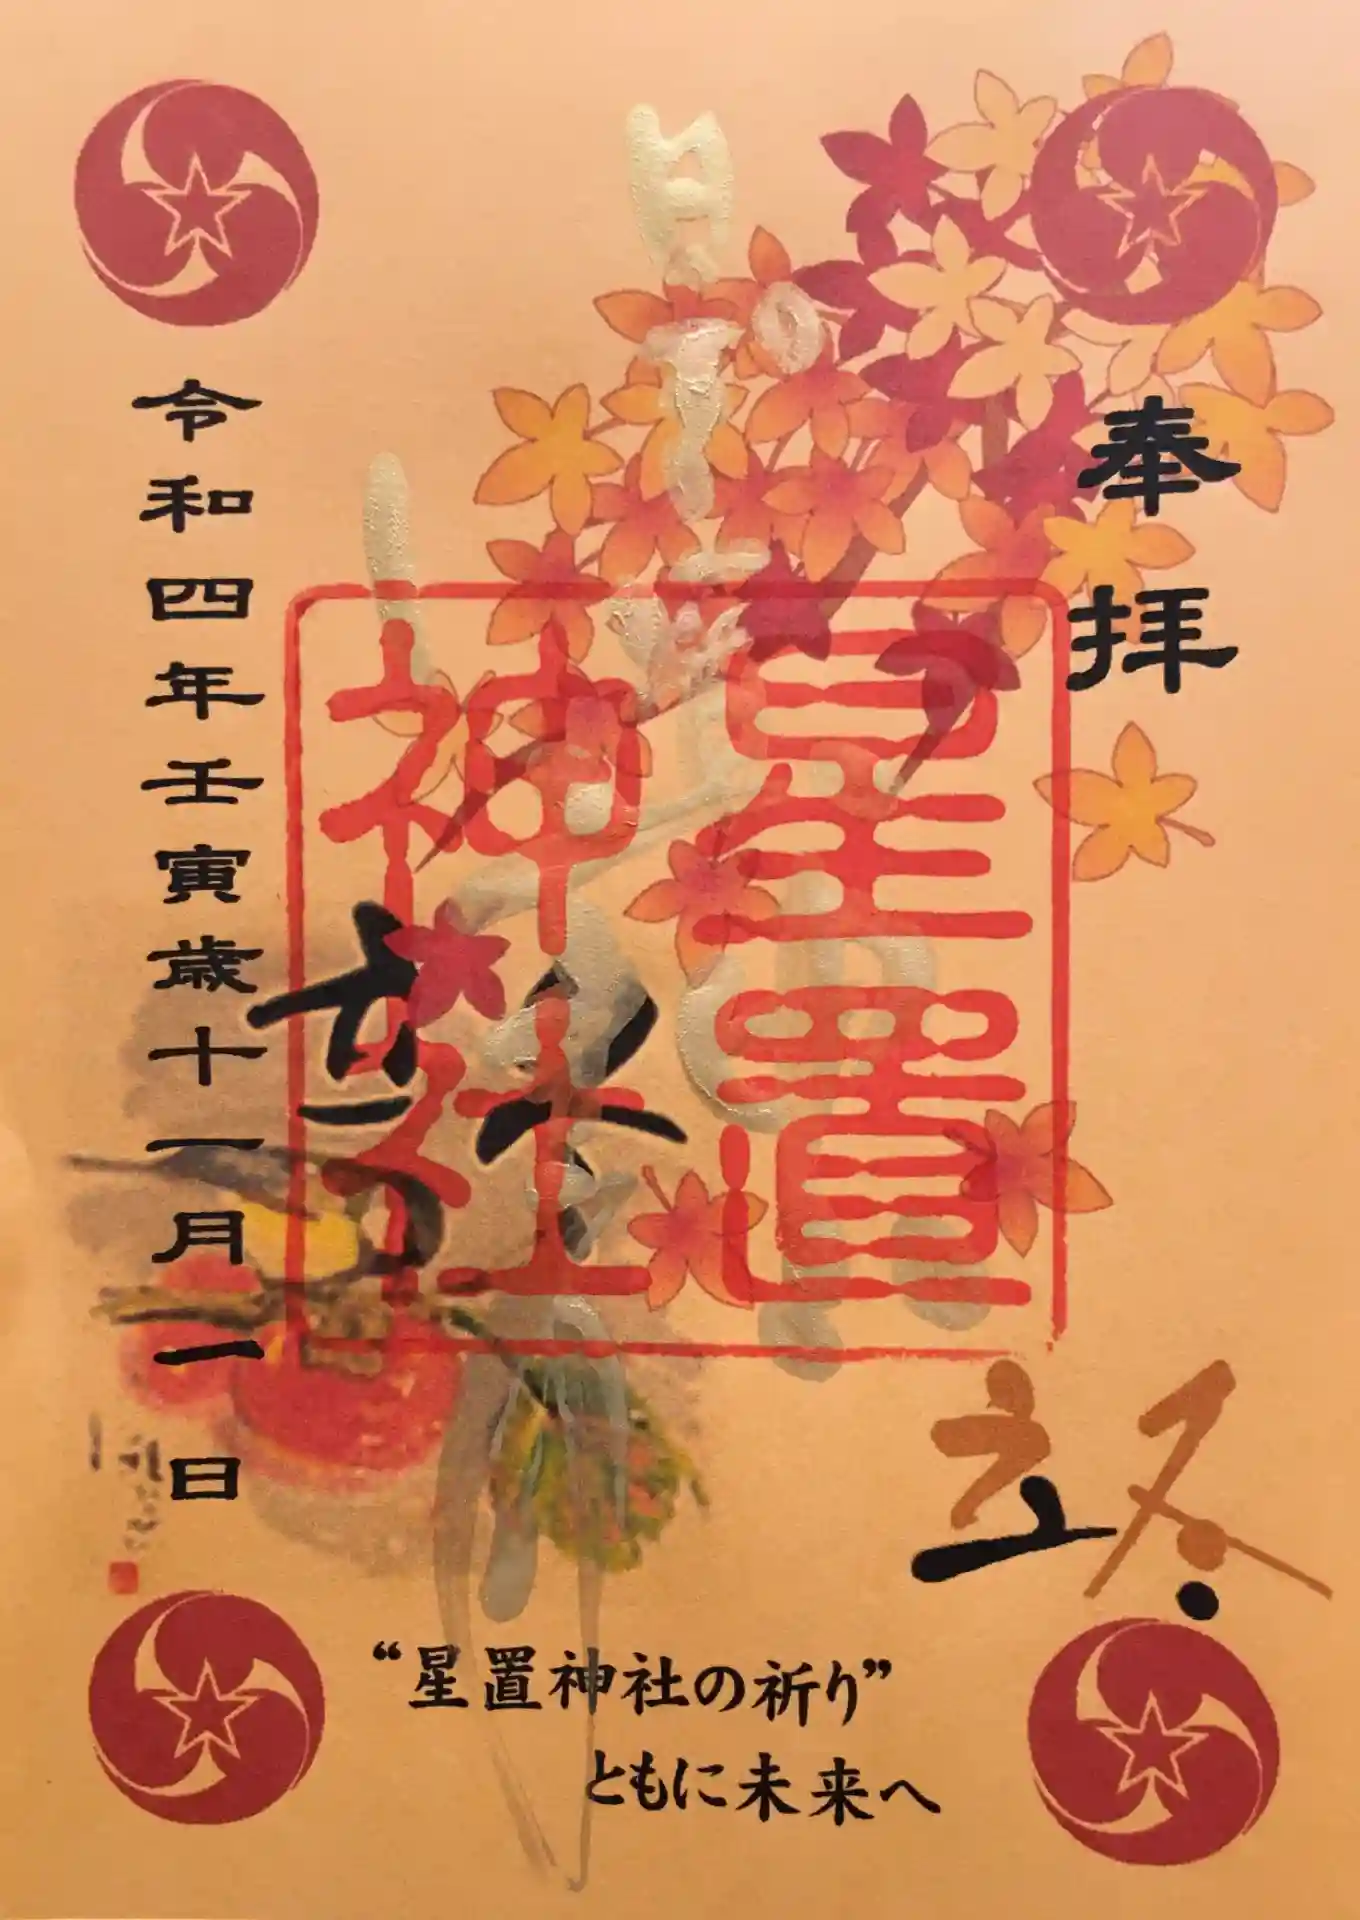 奉拝
星置
神社
令和四年壬寅歳十一月一日
立冬
“星置神社の祈り”
ともに未来へ